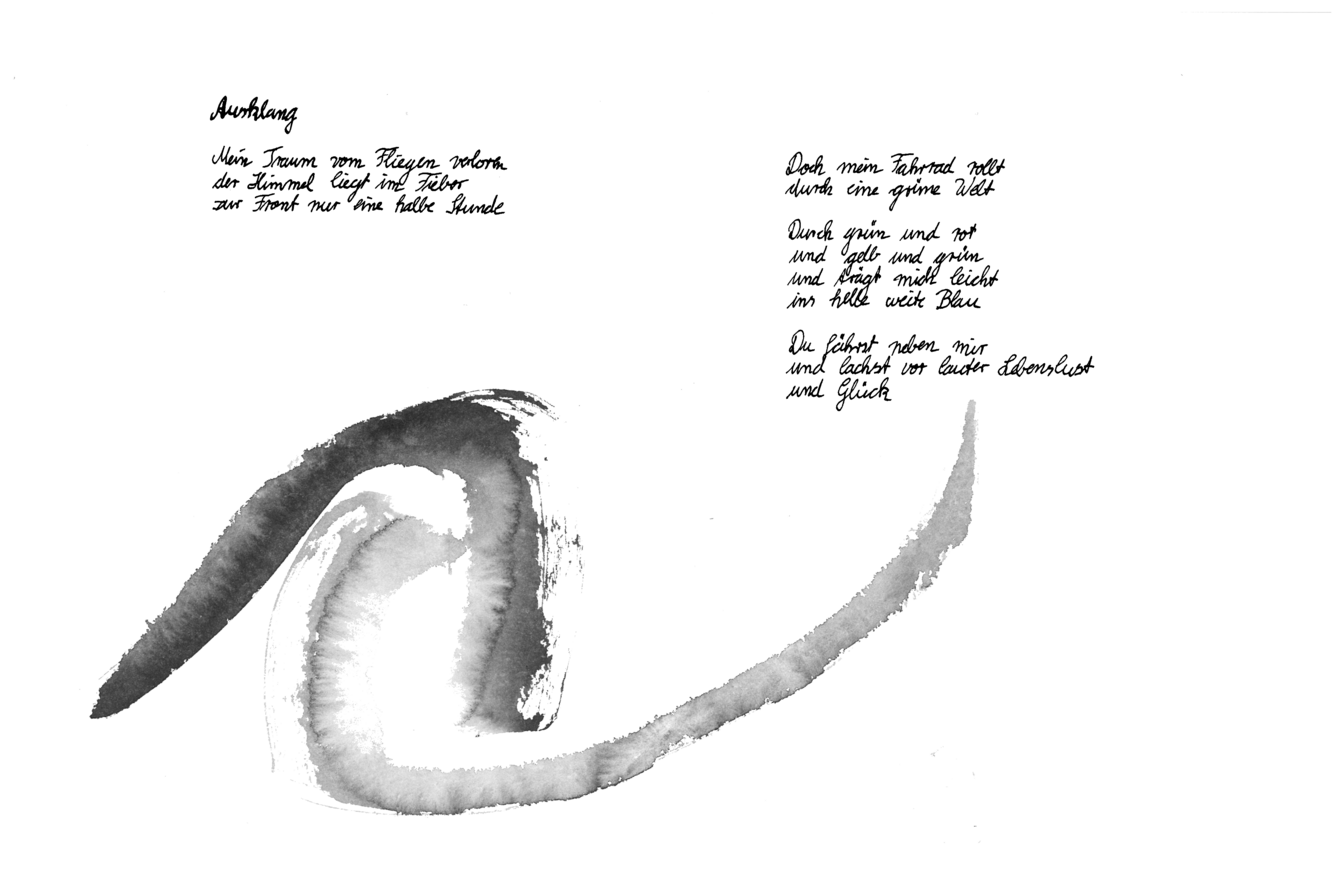 Ausklang
Mein Traum vom Fliegen verloren
der Himmel liegt im Fieber
zur Front nur eine halbe Stunde
Doch mein Fahrrad rollt
durch eine grüne Welt
Durch grün und rot
und gelb und grün
und trägt mich leicht
ins helle weite Blau
Du fährst neben mir
und lachst vor lauter Lebenslust
und Glück